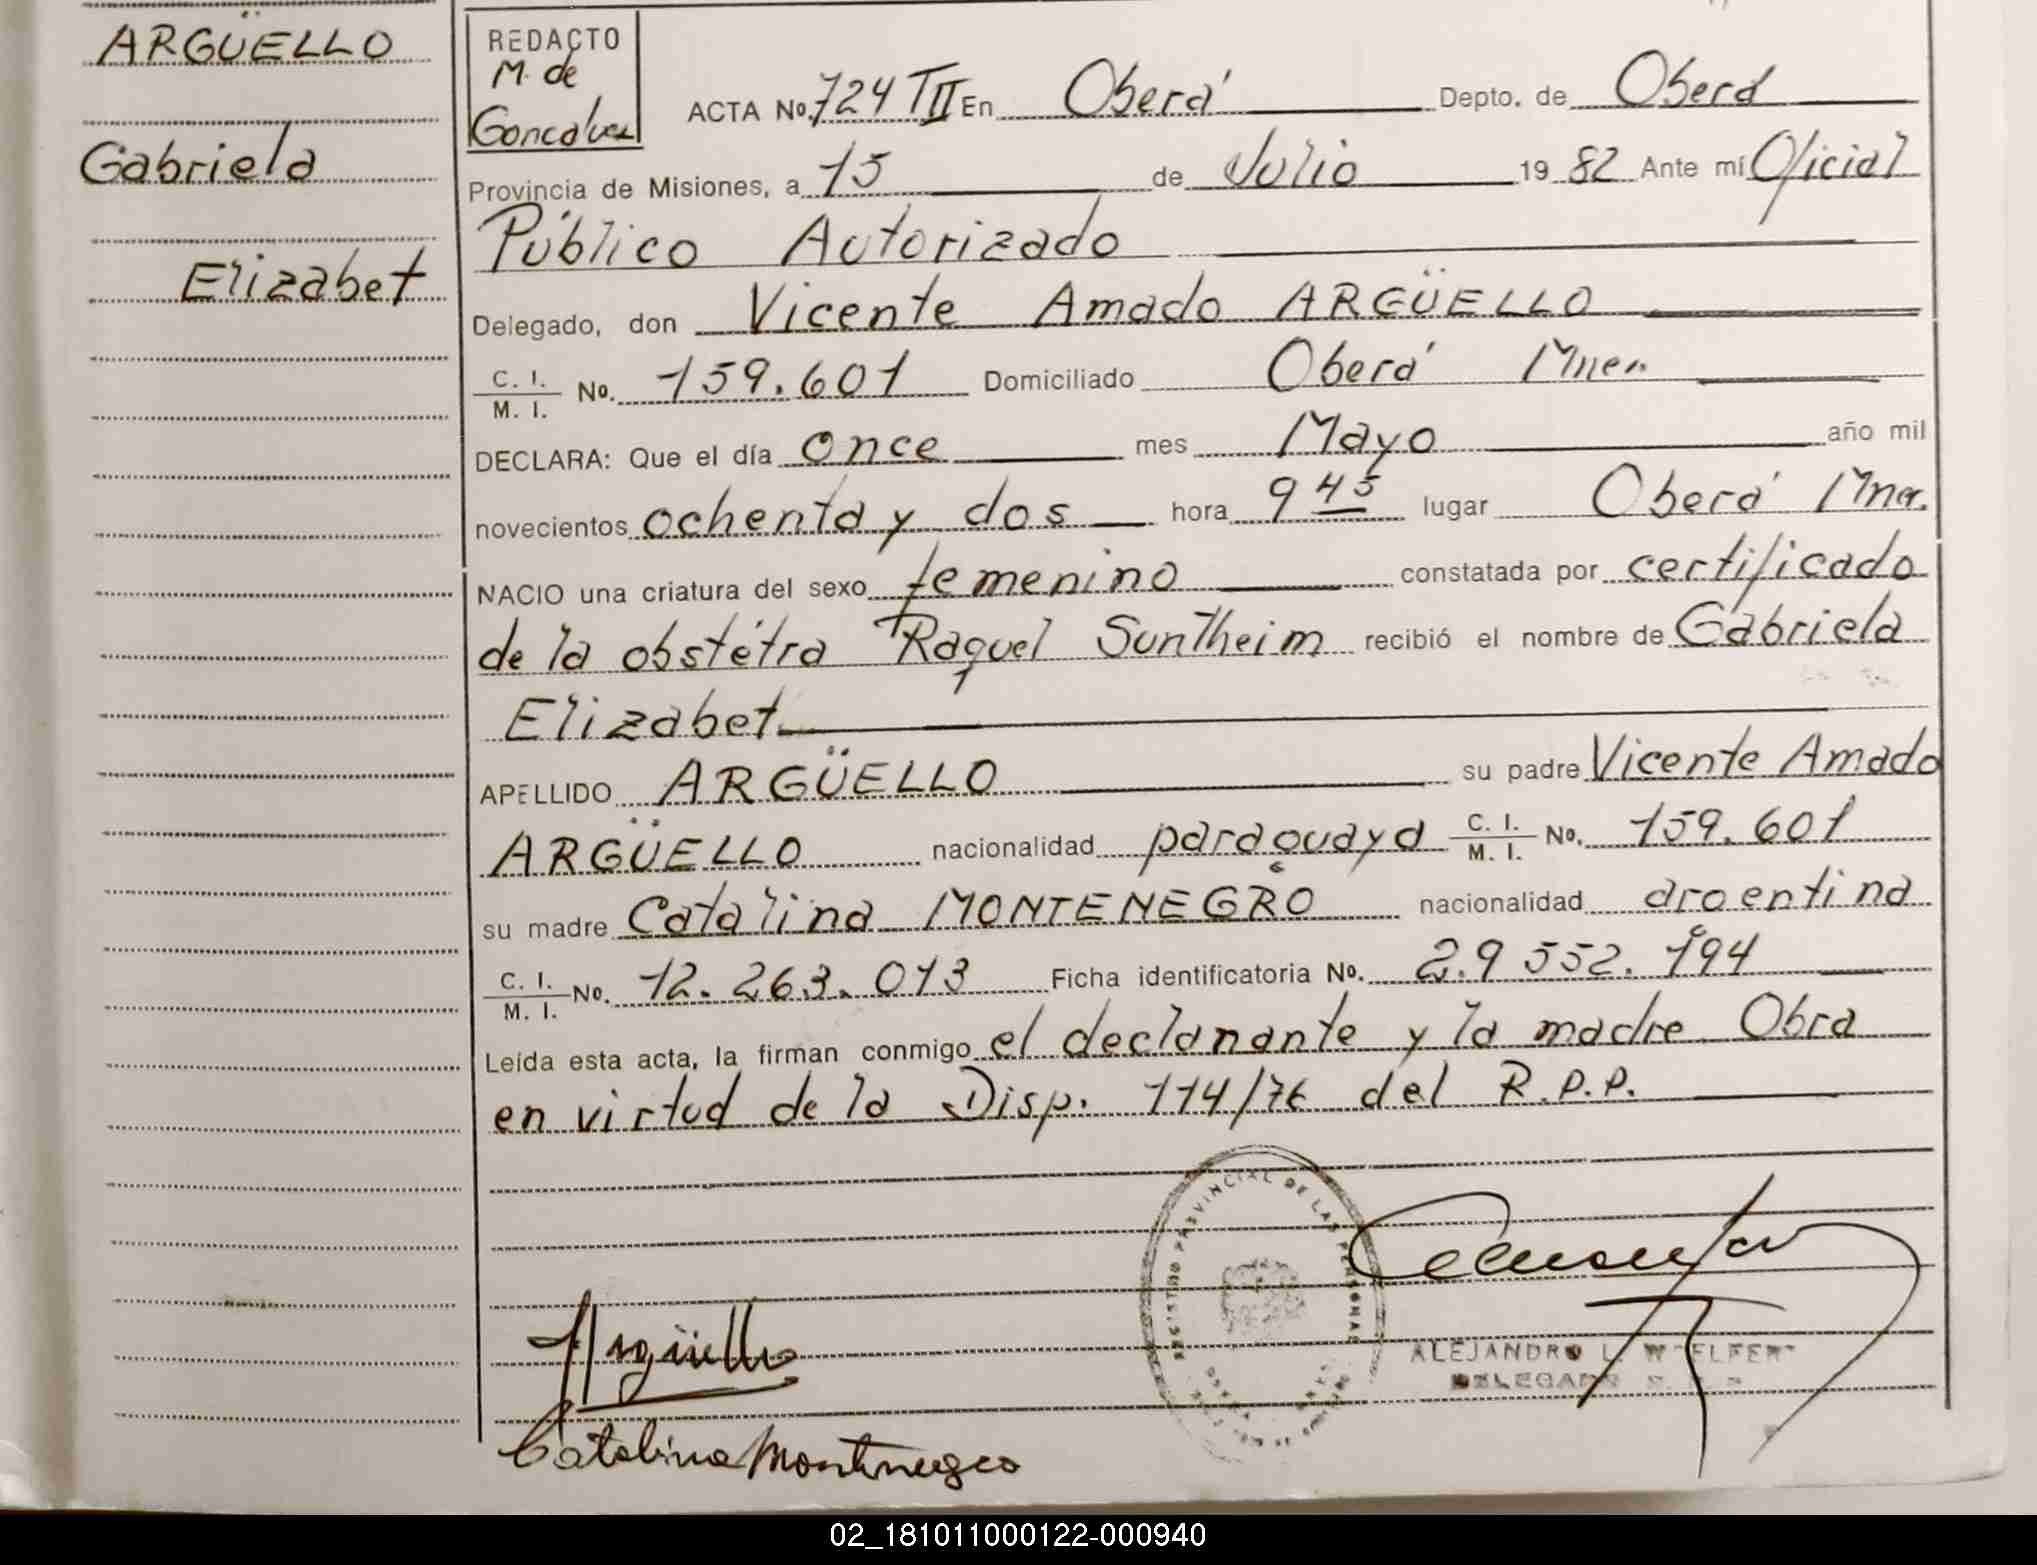 ARGÜELLO
Gabriela
Elizabet
REDACTO
M. de
Goncalves
ACTA No. 724 TII En Oberá Depto. de Oberá
Provincia de Misiones, a 15 de Julio 19 82 Ante mí Oficial
Público Autorizado
Delegado, don Vicente Amado ARGÜELLO
C. I. / M. I. No. 159.601 Domiciliado Oberá Mnes.
DECLARA: Que el día once mes Mayo año mil
novecientos ochenta y dos hora 9 45 lugar Oberá Mnes.
NACIO una criatura del sexo femenino constatada por certificado
de la obstétra Raquel Suntheim recibió el nombre de Gabriela
Elizabet
APELLIDO ARGÜELLO su padre Vicente Amado
ARGÜELLO nacionalidad paraguaya C. I. / M. I. No. 159.601
su madre Catalina MONTENEGRO nacionalidad argentina
C. I. / M. I. No. 12.263.013 Ficha identificatoria No. 29 552.194
Leída esta acta, la firman conmigo el declarante y la madre Obra
en virtud de la Disp. 114/76 del R.P.P.
REGISTRO PROVINCIAL DE LAS PERSONAS
Argüello
ALEJANDRO L.
DELEGADO
Catalina Montenegro
02_181011000122-000940